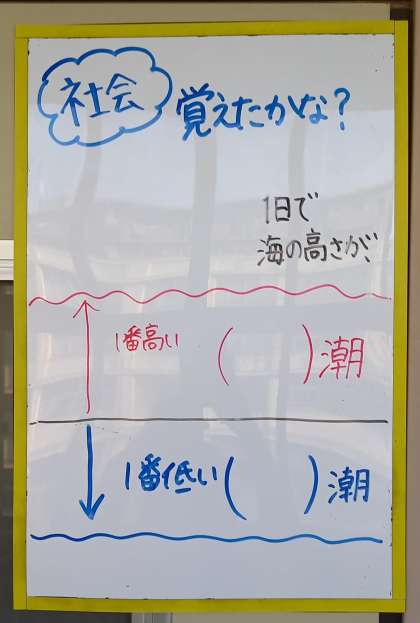 社会
覚えたかな?
1日で
海の高さが、
1番高い ( )潮
1番低い ( )潮